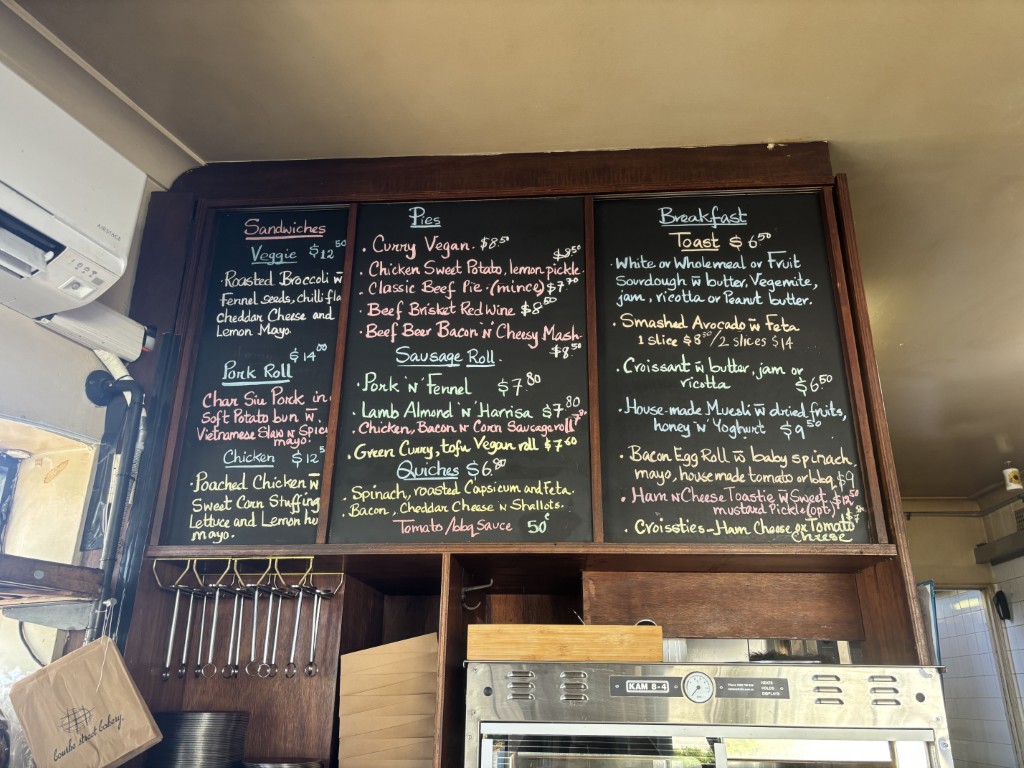 Sandwiches
Veggie $12.50
·Roasted Broccoli w̄
Fennel seeds, chilli fla
cheddar Cheese and
Lemon Mayo.
$14.00
Pork Roll
Char Siu Pork in
Soft Potato bun w̄
Vietnamese Slaw n Spicy
mayo.
Chicken $12.5
·Poached Chicken w̄
Sweet Corn Stuffing
Lettuce and Lemon
mayo.
Pies
· Curry Vegan. $8.50
$8.50
· Chicken Sweet Potato, lemon pickle.
· Classic Beef Pie. (mince) $7.70
· Beef Brisket Red Wine $8.50
· Beef Beer Bacon 'n' Cheesy Mash
$8.50
Sausage Roll.
· Pork 'N' Fennel $7.80
· Lamb Almond 'N' Harrisa $7.80
· Chicken, Bacon N Corn Sausage roll
· Green Curry, tofu Vegan roll $7.60
Quiches $6.80
· Spinach, roasted Capsicum and Feta.
· Bacon, Cheddar Cheese N Shallots.
Tomato/bbq Sauce 50¢
Breakfast
Toast $6.50
·White or Wholemeal or Fruit
Sourdough w̄ butter, Vegemite,
jam, ricotta or Peanut butter.
· Smashed Avocado w̄ Feta
1 slice $8.50/2 slices $14
· Croissant w̄ butter, jam or
ricotta $6.50
· House-made Muesli w̄ dried fruits,
honey 'n' Yoghurt $9.50
· Bacon Egg Roll w̄ baby spinach,
mayo, housemade tomato or bbq $9
· Ham N Cheese Toastie w̄ Sweet
mustard Pickle (opt.)
· Croissties - Ham Cheese or Tomato
Cheese
KAM 8-4
bourke street bakery.